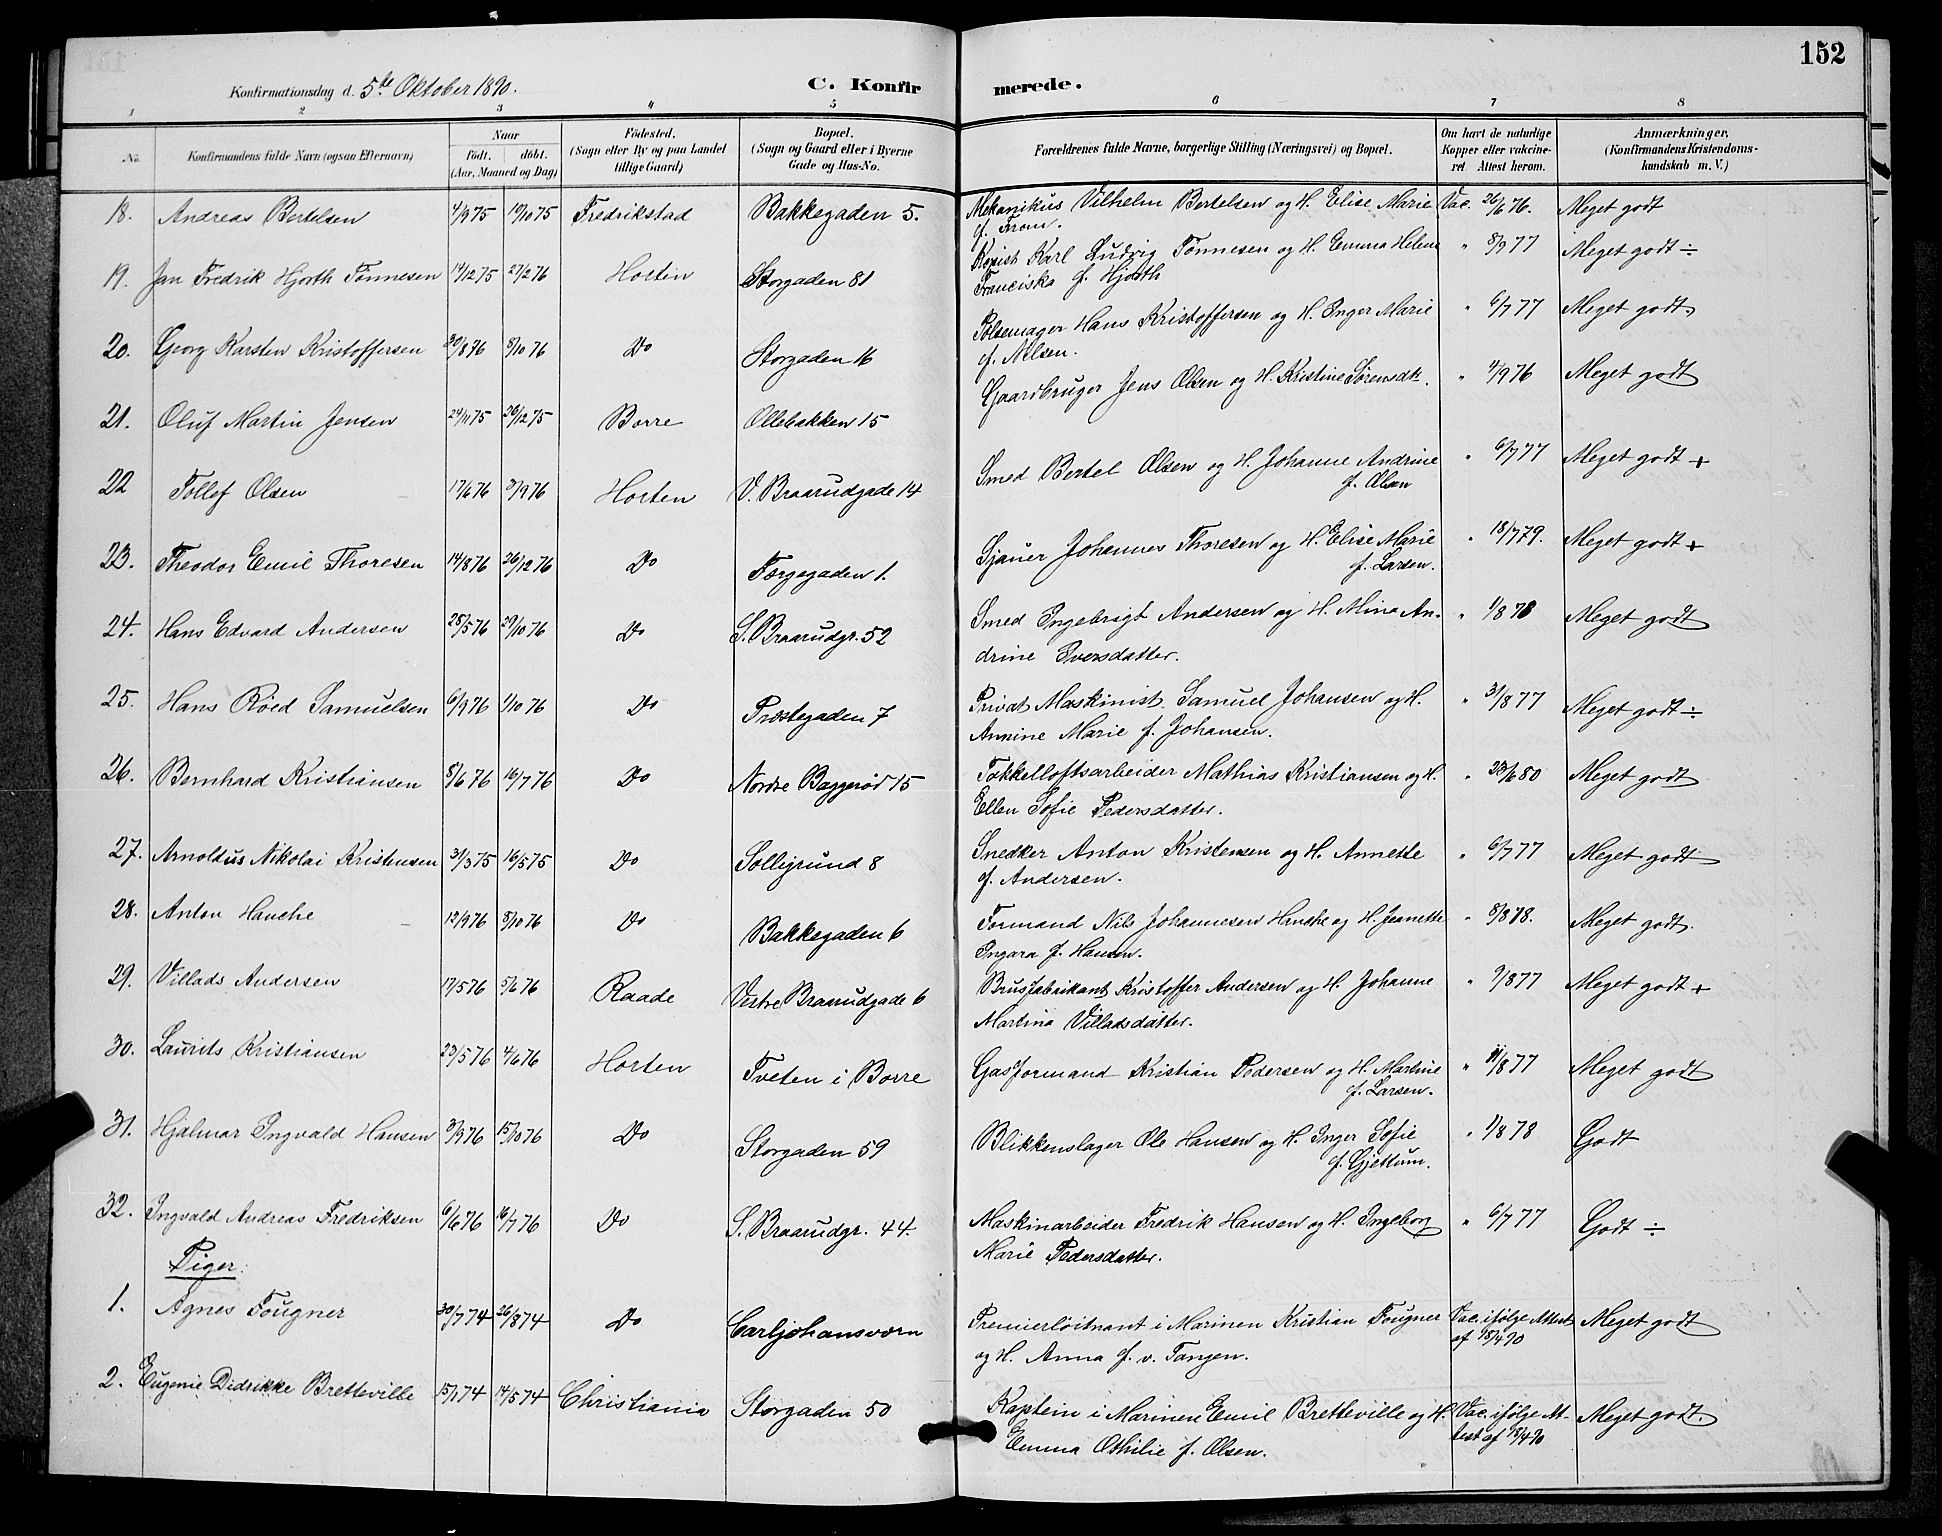 152
Konfirmationsdag d. 5te Oktober 1890.
C. Konfirmerede.
1 2 3 4 5 6 7 8
No. Konfirmandens fulde Navn (ogsaa Efternavn) Naar födt. döbt. (Aar, Maaned og Dag) Födested. (Sogn eller By og paa Landet tillige Gaard) Bopæl. (Sogn og Gaard eller i Byerne Gade og Hus-No. Forældrenes fulde Navne, borgerlige Stilling (Næringsvei) og Bopæl. Om havt de naturlige Kopper eller vaccineret. Attest herom. Anmærkninger, (Konfirmandens Kristendomskundskab m. V.)
18. Andreas Bertelsen 4/9 75 19/10 75 Fredrikstad Bakkegaden 5. Mekanikus Vilhelm Bertelsen og H. Elise Marie Vac. 26/6 76. Meget godt
f. From.
19. Jan Fredrik Hjorth Tønnesen 14/12 75 27/2 76 Horten Storgaden 81 Kopist Karl Ludvig Tønnesen og H. Emma Helene " 8/9 77 Meget godt ÷
Franciska f. Hjorth
20. Georg Karsten Kristoffersen 20/8 76 8/10 76 Do Storgaden 16 Pølsemager Hans Kristoffersen og H. Inger Marie " 6/7 77 Meget godt
f. Nilsen.
21. Oluf Martin Jensen 24/11 75 26/12 75 Borre Ollebakken 15 Gaardbruger Jens Olsen og H. Kristine Sørensdt. " 4/9 76 Meget godt
22 Tollef Olsen 17/6 76 3/9 76 Horten V. Braarudgade 14 Smed Bertel Olsen og H. Johanne Andrine " 6/7 77 Meget godt +
f. Olsen
23. Theodor Emil Thoresen 14/8 76 26/12 76 Do Færgegaden 1. Sjauer Johannes Thoresen og H. Elise Marie " 18/7 79. Meget godt +
f. Larsen.
24. Hans Edvard Andersen 28/5 76 29/10 76 Do S. Braarudgr. 52 Smed Ingebrigt Andersen og H. Mina An- " 1/8 78 Meget godt
drine Iversdatter.
25. Hans Røed Samuelsen 6/9 76 1/10 76 Do Præstegaden 7 Privat Maskinist Samuel Johansen og H. " 31/8 77 Meget godt ÷
Annine Marie f. Johansen.
26. Bernhard Kristiansen 8/6 76 16/7 76 Do Nordre Baggerød 15 Takkelloftsarbeider Mathias Kristiansen og H. " 23/6 80 Meget godt
Ellen Sofie Pedersdatter.
27. Arnoldus Nikolai Kristensen 31/3 75 16/5 75 Do Solligrund 8 Snedker Anton Kristensen og H. Annette " 6/7 77 Meget godt
f. Andersen.
28. Anton Hanche 12/9 76 8/10 76 Do Bakkegaden 6 Formand Nils Johannesen Hanche og H. Jeanette " 8/8 78. Meget godt.
Ingara f. Hansen.
29. Villads Andersen 17/5 76 5/6 76 Raade Vestre Braarudgade 6 Brusfabrikant Kristoffer Andersen og H. Johanne " 9/8 77 Meget godt +
Martina Villadsdatter.
30. Laurits Kristiansen 23/5 76 4/6 76 Horten Tveten i Borre Gasformand Kristian Pedersen og H. Martine " 31/8 77 Meget godt
f. Larsen.
31. Hjalmar Ingvald Hansen 3/9 76 15/10 76 Do Storgaden 59 Blikkenslager Ole Hansen og H. Inger Sofie " 1/8 78 Godt
f. Gjettum.
32. Ingvald Andreas Fredriksen 6/6 76 16/7 76 Do S. Braarudgr. 44. Maskinarbeider Fredrik Hansen og H. Ingeborg " 6/7 77 Godt ÷
Marie Pedersdatter.
Piger:
1. Agnes Fougner 30/7 74 26/8 74 Do Carljohansværn Premierløitnant i Marinen Kristian Fougner Vac. ifølge Attest Meget godt
og H. Anna f. v. Tangen. af 18/4 90
2. Eugenie Didrikke Bretteville 15/1 74 14/5 74 Christiania Storgaden 50 Kaptein i Marinen Emil Bretteville og H. Vac. ifølge At- Meget godt.
Emma Othilie f. Olsen. test af 18/4 90